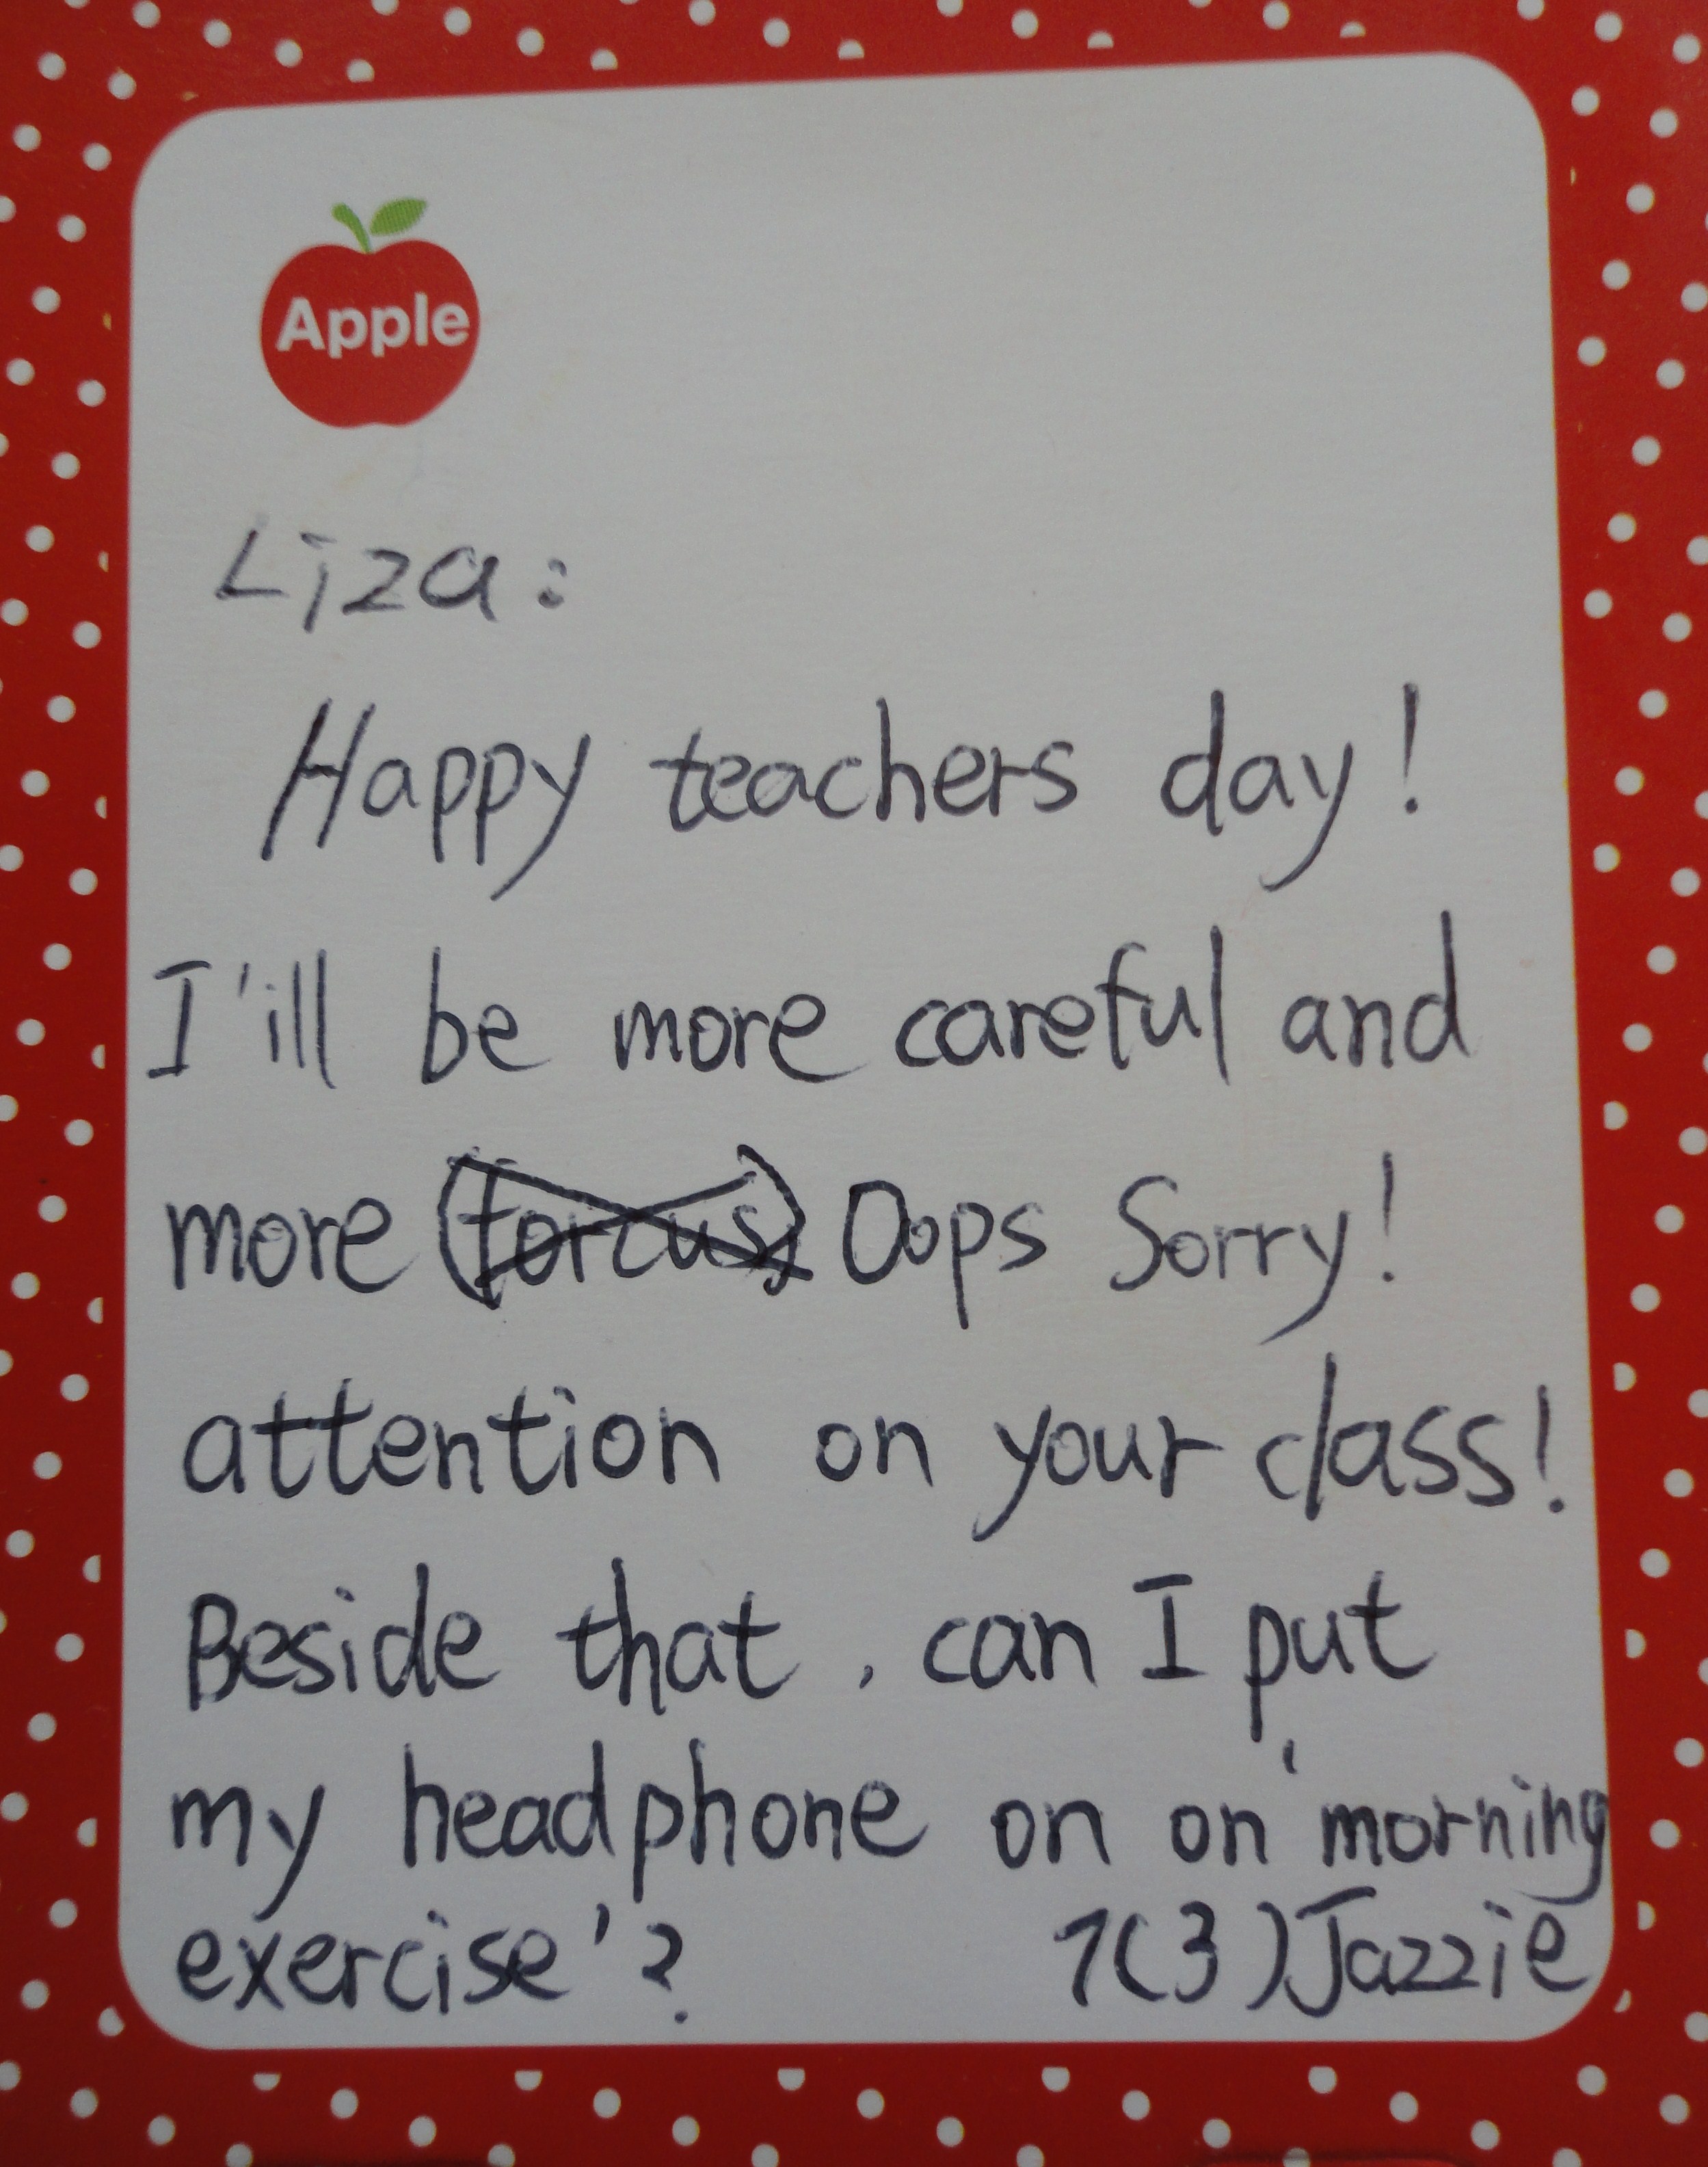 Apple
Liza:
Happy teachers day!
I'ill be more careful and
more (forcus) Oops Sorry!
attention on your class!
Beside that, can I put
my headphone on on 'morning
exercise'? 7(3) Jazzie